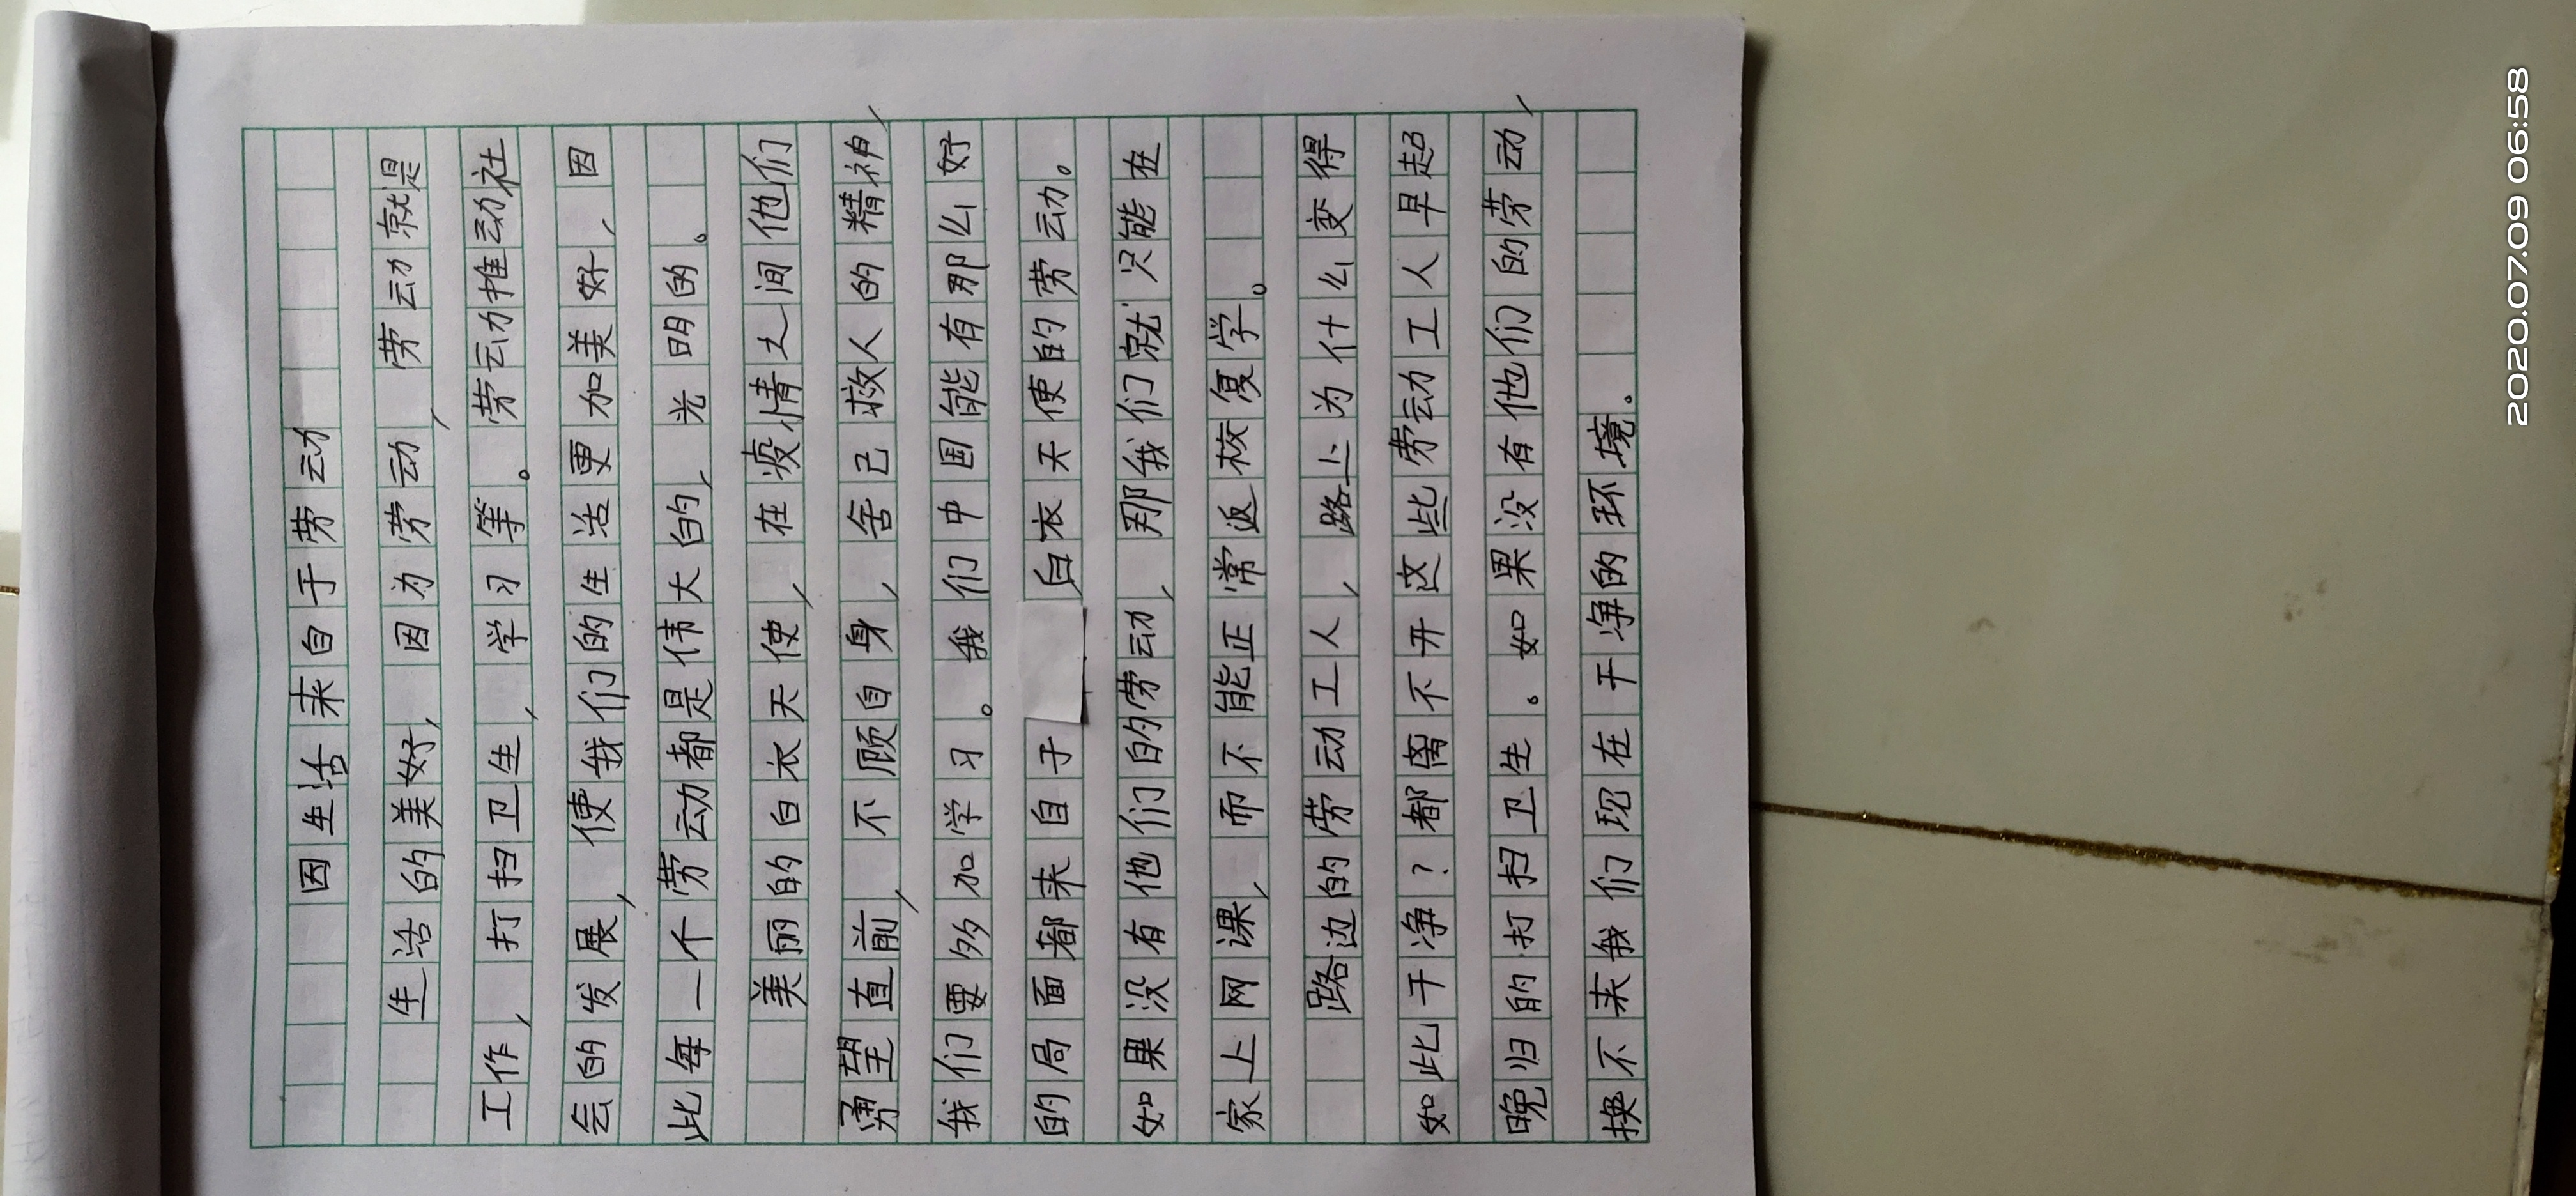 因生活来自于劳动
生活的美好,因为劳动,劳动就是
工作,打扫卫生,学习等。劳动推动社
会的发展,使我们的生活更加美好,因
此每一个劳动都是伟大的,光明的。
美丽的白衣天使,在疫情之间他们
勇望直前,不顾自身,舍己救人的精神,
我们要多加学习。我们中国能有那么好
的局面都来自于白衣天使的劳动。
如果没有他们的劳动,那我们就只能在
家上网课,而不能正常返校复学。
路边的劳动工人,路上为什么变得
如此干净?都离不开这些劳动工人早起
晚归的打扫卫生。如果没有他们的劳动,
换不来我们现在干净的环境。
2020.07.09 06:58